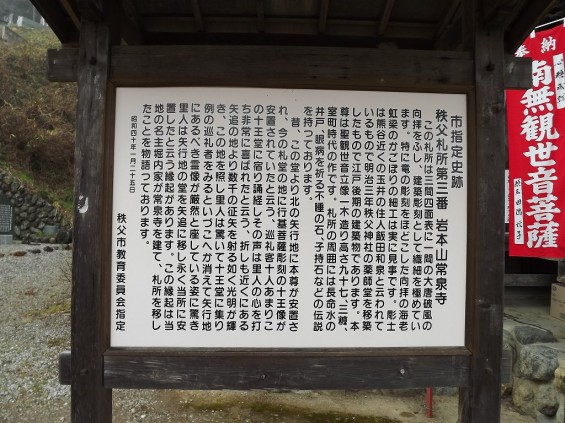 市指定史跡
秩父札所第三番 岩本山常泉寺
この札所は三間四面表に一間の大唐破風の
向拝をふし、建築彫刻として繊細を極めてい
ます。特に竜の彫刻をほどこした向拝の海老
虹梁のかごぼりの細工は実に見事です。彫士
は熊谷近くの玉井の住人飯田和泉と云われて
いるもので明治三年秩父神社の薬師堂を移築
したもので江戸後期の建築物であります。本
尊は聖観世音立像一木造り高さ九十七、三糎、
室町時代の作です。札所の周囲には長命水の
井戸、眼病を祈る不睡の石、子持石などの伝説
を持っております。
昔、この堂より北の矢行地に本尊が安置さ
れ、今の札堂の地に行基菩薩彫刻の十王像が
安置されていたと云う、巡礼客十人あまりこ
の十王堂に宿り誦経しその声は里人の心を打
ち非常に喜ばれたと云う、折しも近くにある
矢追の地より数千の征矢を射る如く光明が輝
き、この地を照し里人は驚いて十王堂に集り
例の巡礼者をみるといづこへか消えて矢行地
にあるべき霊像が厳然と座している姿に驚き
里人は矢行地の堂を矢追に移し永く当所に安
置したと云う縁起があります。この縁起は当
地の名主堀内家が常泉寺を建て、札所を移し
たことを物語っております。
昭和四十年一月二十五日
秩父市教育委員会指定
奉納
南無観世音菩薩